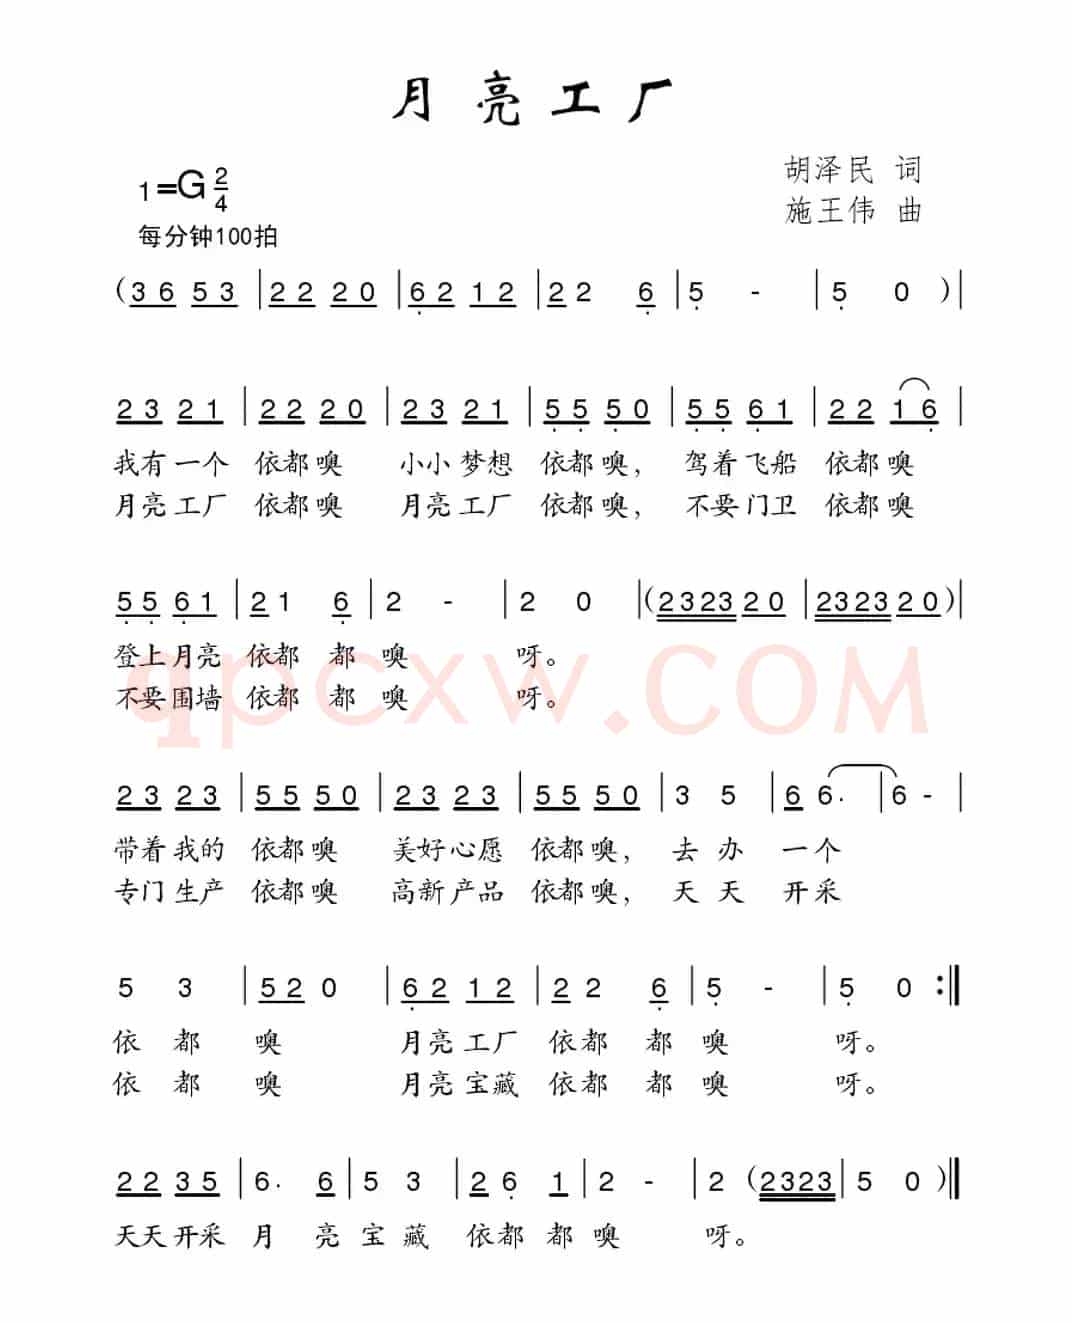 月亮工厂
1=G 2/4
胡泽民 词
施王伟 曲
每分钟100拍
(36 53 | 22 20 | 62 12 | 22 6 | 5 - | 5 0 ) |
23 21 | 22 20 | 23 21 | 55 50 | 55 61 | 22 16 |
我有一个 依都噢 小小梦想 依都噢, 驾着飞船 依都噢
月亮工厂 依都噢 月亮工厂 依都噢, 不要门卫 依都噢
55 61 | 21 6 | 2 - | 2 0 | (2323 20 | 2323 20) |
登上月亮 依都 都 噢 呀。
不要围墙 依都 都 噢 呀。
qpcxw.COM
23 23 | 55 50 | 23 23 | 55 50 | 3 5 | 6 6. | 6 - |
带着我的 依都噢 美好心愿 依都噢, 去 办 一个
专门生产 依都噢 高新产品 依都噢, 天 天 开采
5 3 | 52 0 | 62 12 | 22 6 | 5 - | 5 0 :||
依 都 噢 月亮工厂 依都 都 噢 呀。
依 都 噢 月亮宝藏 依都 都 噢 呀。
22 35 | 6. 6 | 5 3 | 26 1 | 2 - | 2 (2323 | 5 0 ) ||
天天开采 月 亮 宝 藏 依都 都 噢 呀。